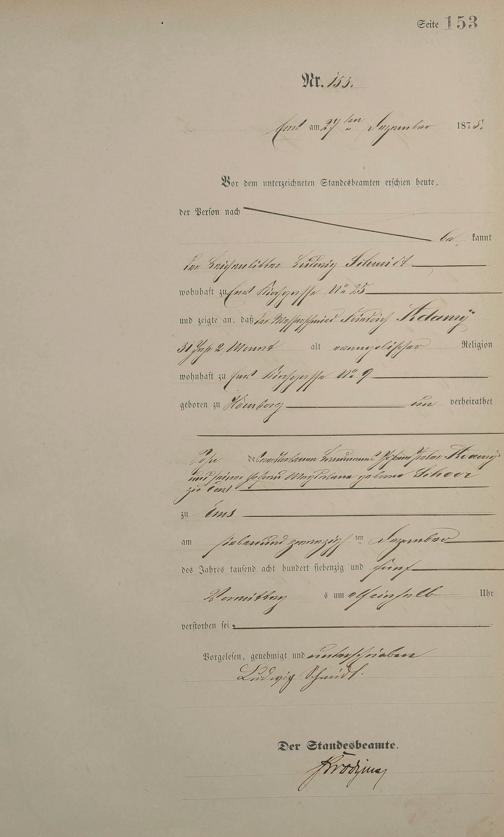 Seite 153
Nr. 153.
Ems am 27ten Dezember 1875.
Vor dem unterzeichneten Standesbeamten erschien heute,
der Person nach
be kannt
der Leichenbitter Ludwig Schmidt
wohnhaft zu Ems Kirchgasse No 25
und zeigte an, daß der Heinrich Adamy
51 Jahr 2 Monat alt evangelischer Religion
wohnhaft zu Ems Kirchgasse No 9
geboren zu un verheirathet
Sohn des Johann Peter Adamy
und seiner Magdalena geborne
zu Ems
zu Ems
am siebenundzwanzigsten Dezember
des Jahres tausend acht hundert siebenzig und fünf
Vormittag s um Uhr
verstorben sei.
Vorgelesen, genehmigt und unterschrieben
Ludwig Schmidt.
Der Standesbeamte.